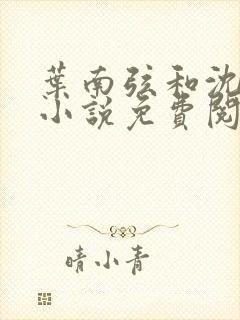 葉南弦和沈
小說免費閱
晴小青